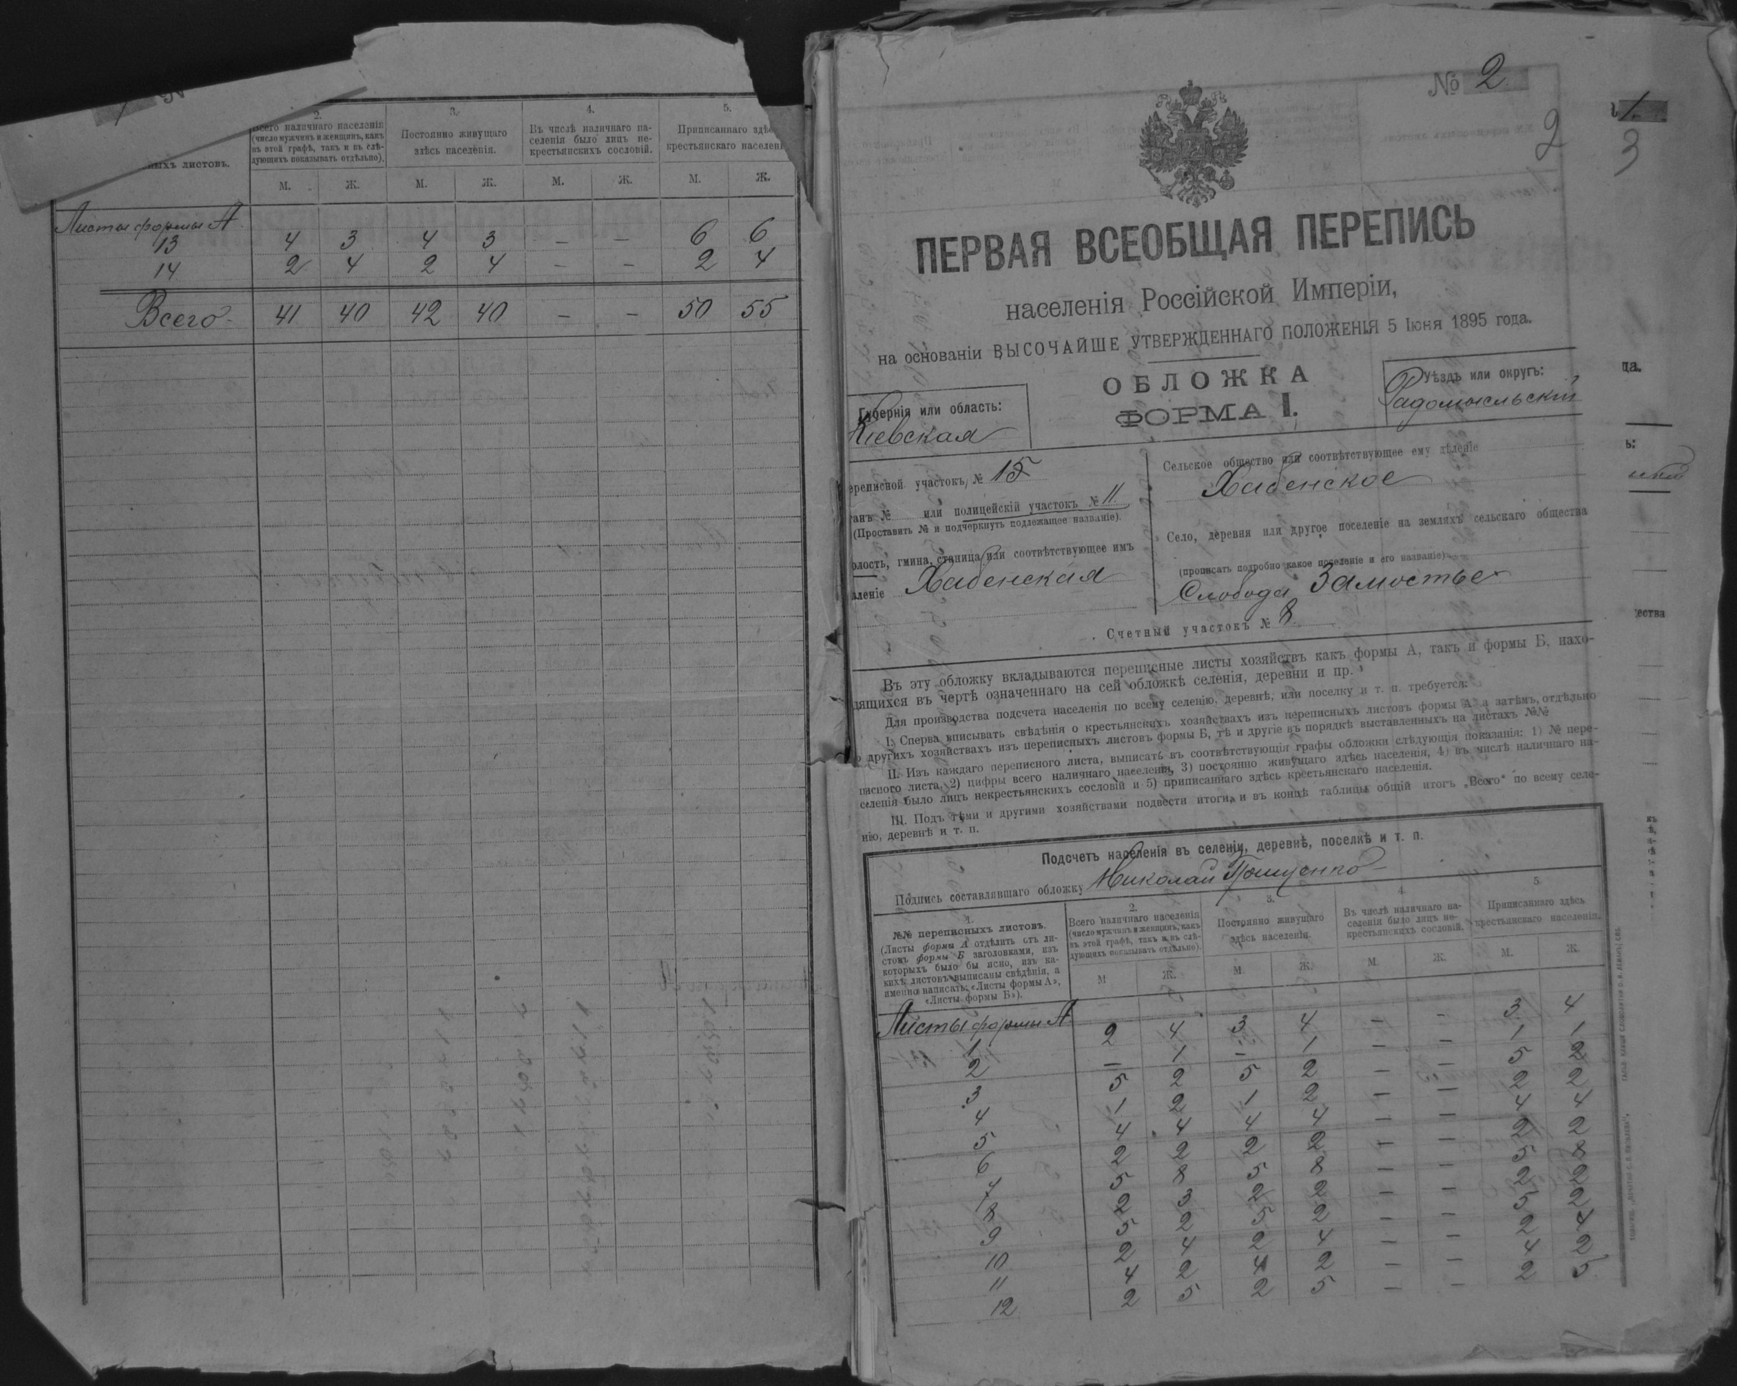 2.
Всего наличнаго населенія
(число мужчинъ и женщинъ, какъ
въ этой графѣ, такъ и въ слѣ-
дующихъ показывать отдѣльно).
3.
Постоянно живущаго
здѣсь населенія.
4.
Въ числѣ наличнаго на-
селенія было лицъ не-
крестьянскихъ сословій.
5.
Приписаннаго здѣ
крестьянскаго населен
ныхъ листовъ.
М. Ж. М. Ж. М. Ж. М. Ж.
Листы формы А
13 4 3 4 3 – – 6 6
14 2 4 2 4 – – 2 4
Всего 41 40 42 40 – – 50 55
№ 2
2
3
ПЕРВАЯ ВСЕОБЩАЯ ПЕРЕПИСЬ
населенія Россійской Имперіи,
на основаніи ВЫСОЧАЙШЕ УТВЕРЖДЕННАГО ПОЛОЖЕНІЯ 5 Іюня 1895 года.
ОБЛОЖКА
ФОРМА I.
Губернія или область:
Кіевская
Уѣздъ или округъ:
Радомысльскій
ереписной участокъ, № 15
танъ № или полицейскій участокъ № 11
(Проставить № и подчеркнуть подлежащее названіе).
олость, гмина, станица или соотвѣтствующее имъ
дѣленіе Хабенская
Сельское общество или соотвѣтствующее ему дѣленіе
Хабенское
Село, деревня или другое поселеніе на земляхъ сельскаго общества
(прописать подробно какое поселеніе и его названіе)
Слобода Замостье
Счетный участокъ № 8
Въ эту обложку вкладываются переписные листы хозяйствъ какъ формы А, такъ и формы Б, нахо-
дящихся въ чертѣ означеннаго на сей обложкѣ селенія, деревни и пр.
Для производства подсчета населенія по всему селенію, деревнѣ, или поселку и т. п. требуется:
I. Сперва вписывать свѣдѣнія о крестьянскихъ хозяйствахъ изъ переписныхъ листовъ формы А, а затѣмъ, отдѣльно
о другихъ хозяйствахъ изъ переписныхъ листовъ формы Б, тѣ и другіе въ порядкѣ выставленныхъ на листахъ №№
II. Изъ каждаго переписного листа, выписать въ соотвѣтствующія графы обложки слѣдующія показанія: 1) № пере-
писного листа, 2) цифры всего наличнаго населенія, 3) постоянно живущаго здѣсь населенія, 4) въ числѣ наличнаго на-
селенія было лицъ некрестьянскихъ сословій и 5) приписаннаго здѣсь крестьянскаго населенія.
III. Подъ тѣми и другими хозяйствами подвести итоги, и въ концѣ таблицы общій итогъ „Всего“ по всему селе-
нію, деревнѣ и т. п.
Подсчетъ населенія въ селеніи, деревнѣ, поселкѣ и т. п.
Подпись составлявшаго обложку Николай
1.
№№ переписныхъ листовъ.
(Листы формы А отдѣлить отъ ли-
стовъ формы Б заголовками, изъ
которыхъ было бы ясно, изъ ка-
кихъ листовъ выписаны свѣдѣнія, а
именно написать: «Листы формы А»,
«Листы формы Б»).
2.
Всего наличнаго населенія
(число мужчинъ и женщинъ, какъ
въ этой графѣ, такъ и въ слѣ-
дующихъ показывать отдѣльно).
3.
Постоянно живущаго
здѣсь населенія.
4.
Въ числѣ наличнаго на-
селенія было лицъ не-
крестьянскихъ сословій.
5.
Приписаннаго здѣсь
крестьянскаго населенія.
М. Ж. М. Ж. М. Ж. М. Ж.
Листы формы А
1 2 4 3 4 – – 3 4
2 – 1 – 1 – – 1 1
3 5 2 5 2 – – 5 2
4 1 2 1 2 – – 2 2
5 4 4 4 4 – – 4 4
6 2 2 2 2 – – 2 2
7 5 8 5 8 – – 5 8
8 2 3 2 2 – – 2 2
9 5 2 5 2 – – 5 2
10 2 4 2 4 – – 2 4
11 4 2 4 2 – – 4 2
12 2 5 2 5 – – 2 5